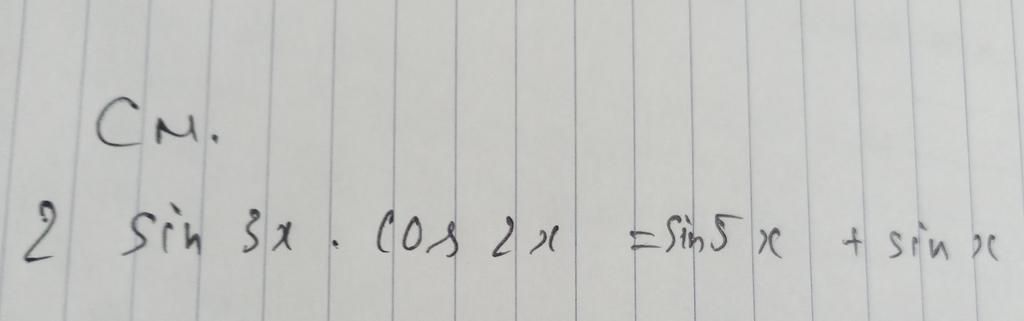 CM.
2 sin 3x . cos 2x = sin 5x + sin x